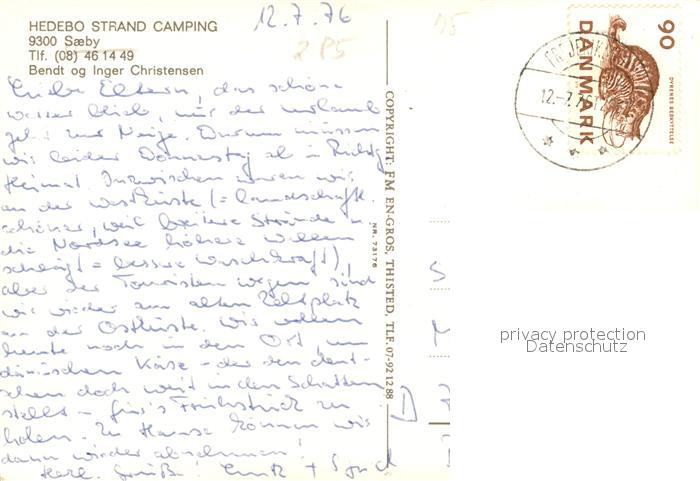 HEDEBO STRAND CAMPING
9300 Sæby
Tlf. (08) 46 14 49
Bendt og Inger Christensen
12.7.76
2 P5
Liebe Eltern, das schöne
Wetter blieb, nur der Urlaub
geht zur Neige. Darum müssen
wir leider Donnerstag ab in Richtg
Heimat. Inzwischen waren wir
an der Westküste (= landschaftl.
schöner, weil breitere Strände u
die Nordsee höhere Wellen
schlägt = bessere Waschkraft),
aber der Touristen wegen sind
wir wieder am alten Zeltplatz
an der Ostküste. Wir wollen
heute noch in den Ort, um
dänischen Käse - der den deut-
schen doch weit in den Schatten
stellt - für's Frühstück zu
holen. Zu Hause können wir
dann wieder abnehmen!
Herzl. Grüße!
COPYRIGHT: FM EN-GROS, THISTED, TLF. 07-92 12 88
NR. 73176
90
DANMARK
DYRENES BESKYTTELSE
12.-7.76
D
privacy protection
Datenschutz